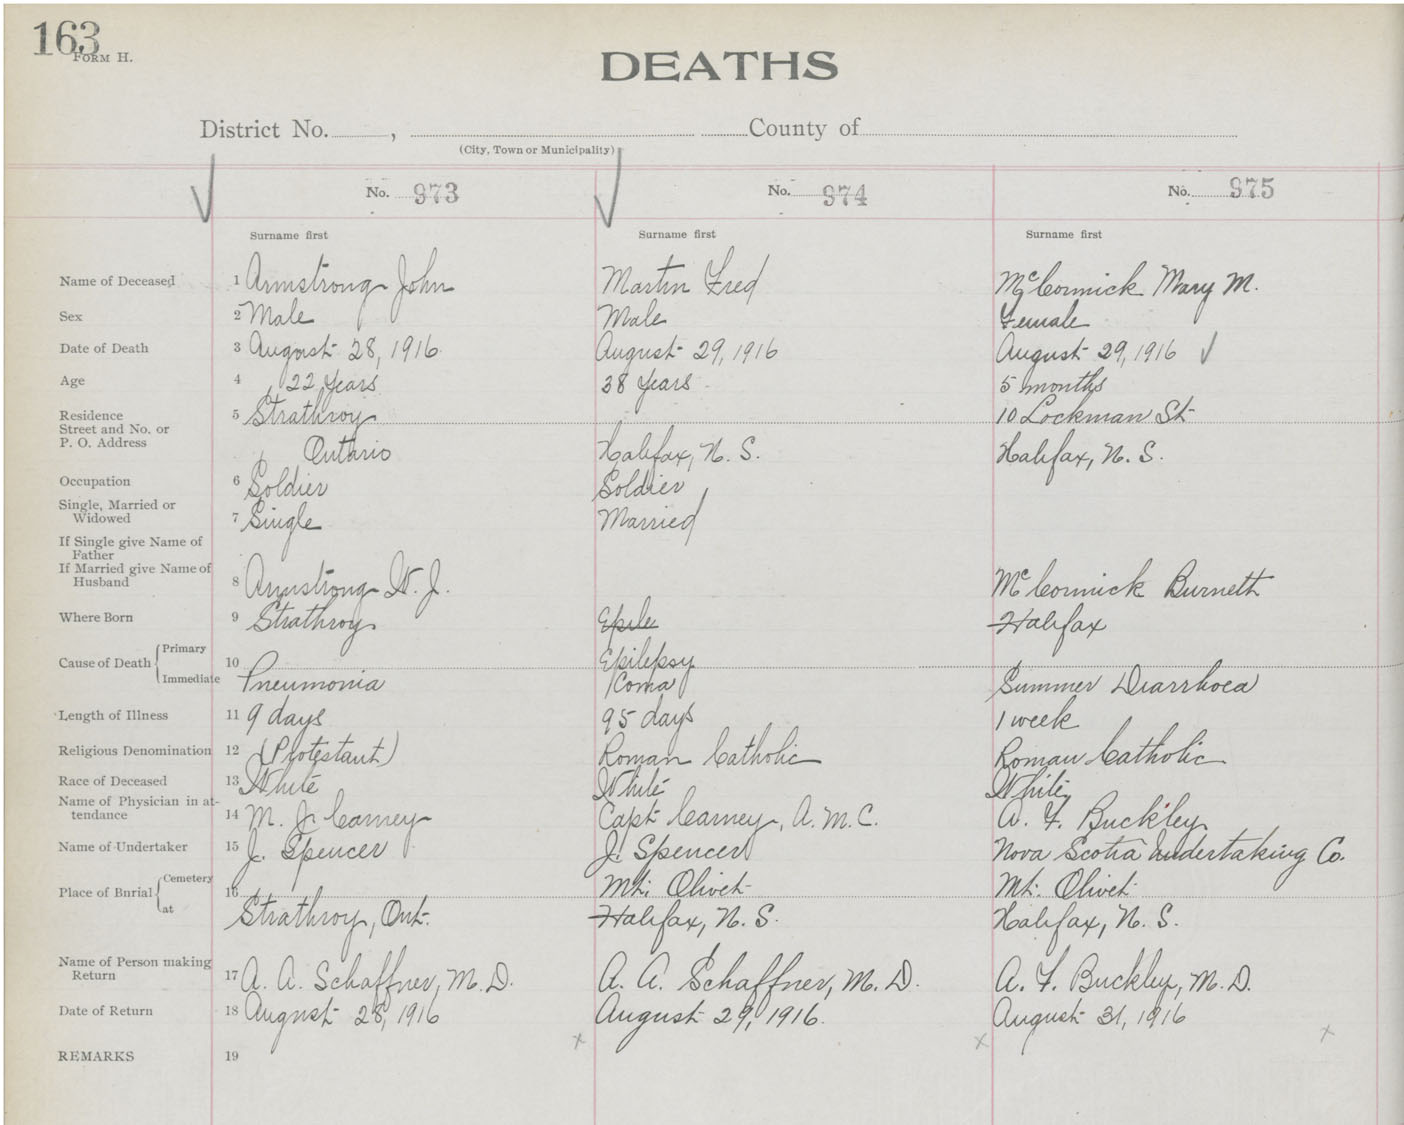 163
FORM H.
DEATHS
District No. , County of
(City, Town or Municipality)
No. 973 No. 974 No. 975
Surname first Surname first Surname first
Name of Deceased 1 Armstrong John Martin Fred McCormick Mary M.
Sex 2 Male Male Female
Date of Death 3 August 28, 1916 August 29, 1916 August 29, 1916
Age 4 22 Years 38 Years 5 months
Residence 5 Strathroy 10 Lockman St
Street and No. or
P. O. Address Ontario Halifax, N. S. Halifax, N. S.
Occupation 6 Soldier Soldier
Single, Married or
Widowed 7 Single Married
If Single give Name of
Father
If Married give Name of
Husband 8 Armstrong W. J. McCormick Burneth
Where Born 9 Strathroy Epile Halifax
Cause of Death Primary 10 Epilepsy
Immediate Pneumonia Coma Summer Diarrhoea
Length of Illness 11 9 days 95 days 1 week
Religious Denomination 12 (Protestant) Roman Catholic Roman Catholic
Race of Deceased 13 White White White
Name of Physician in at-
tendance 14 M. J. Carney Capt Carney, A. M. C. A. F. Buckley
Name of Undertaker 15 J. Spencer J. Spencer Nova Scotia Undertaking Co.
Place of Burial Cemetery 16 Mt. Olivet Mt. Olivet
at Strathroy, Ont. Halifax, N. S. Halifax, N. S.
Name of Person making
Return 17 A. A. Schaffner, M. D. A. A. Schaffner, M. D. A. F. Buckley, M. D.
Date of Return 18 August 28, 1916 August 29, 1916. August 31, 1916
REMARKS 19